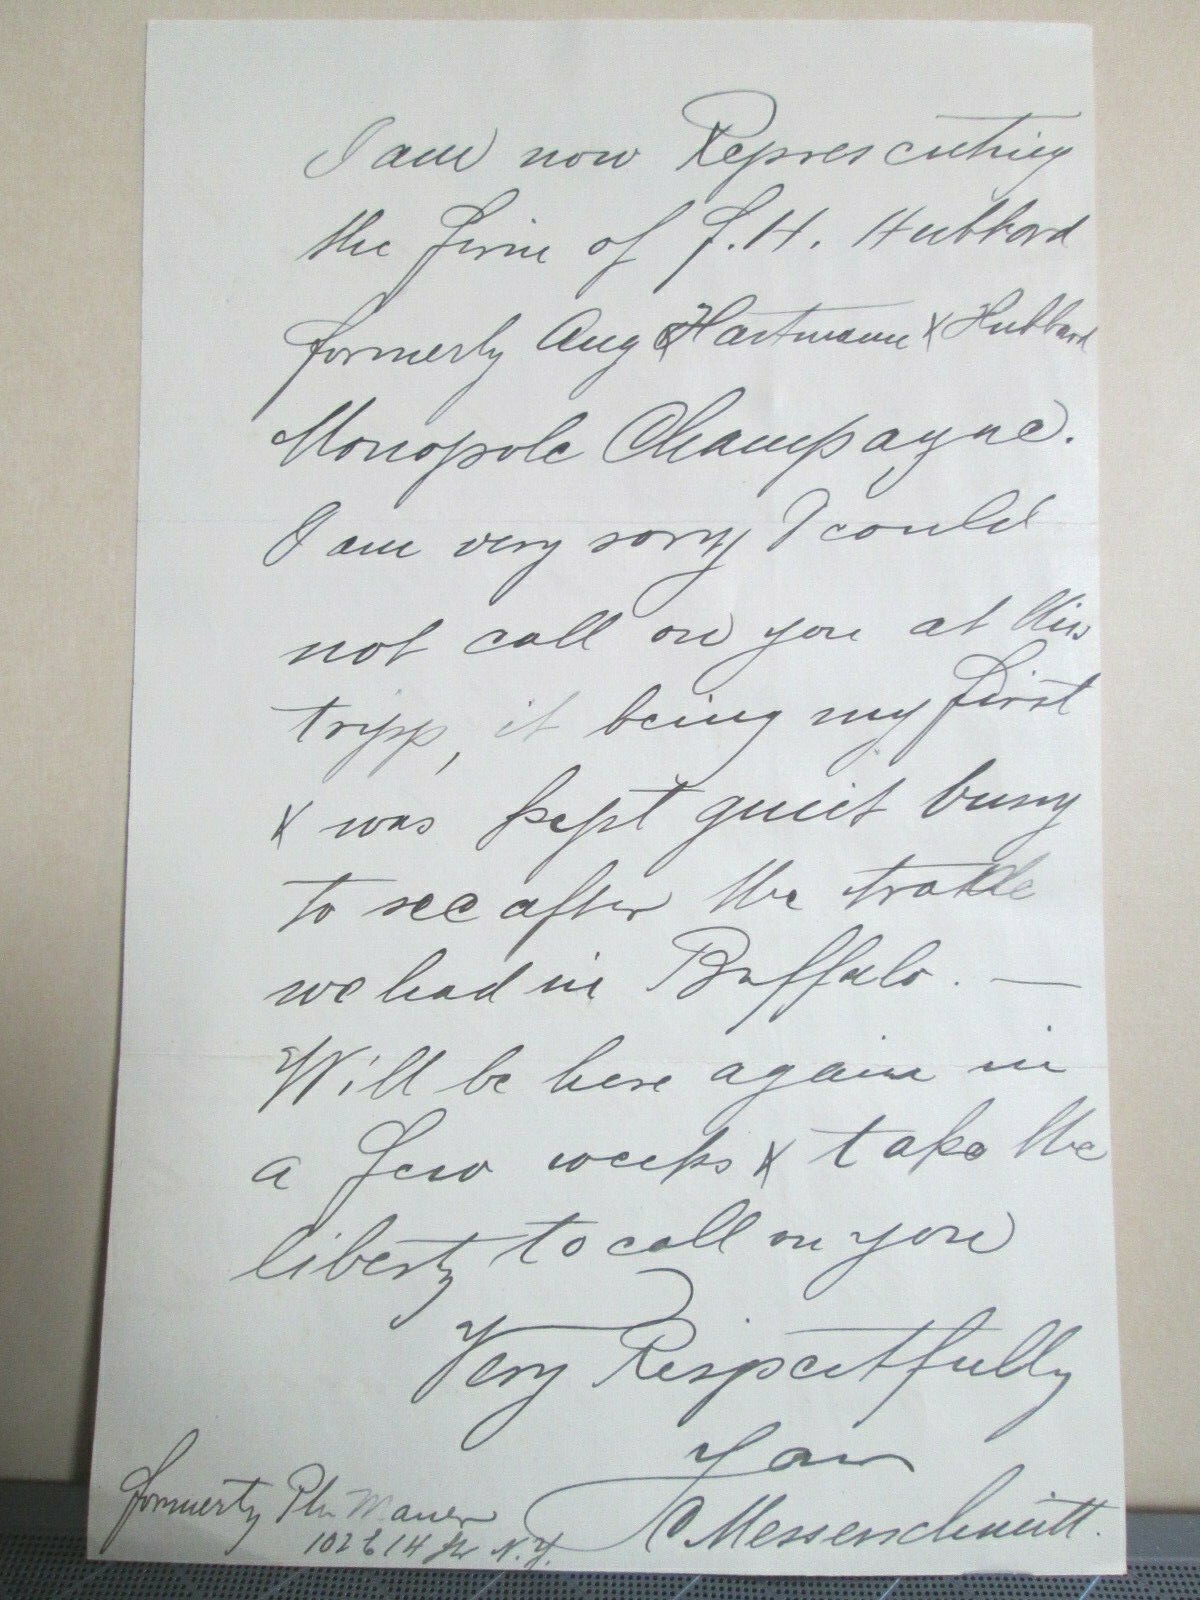 I am now Representing
the firm of J. H. Hubbard
formerly Aug Hartmann & Hubbard
Monopole Champagne.
I am very sorry I could
not call on you at this
tripp, it being my first
& was kept quiet busy
to see after the trade
we had in Buffalo. —
Will be here again in
a few weeks & take the
liberty to call on you
Very Respectfully
Your
C Messerschmitt.
formerly Ph. Mauer
102 E 14 St N.Y.